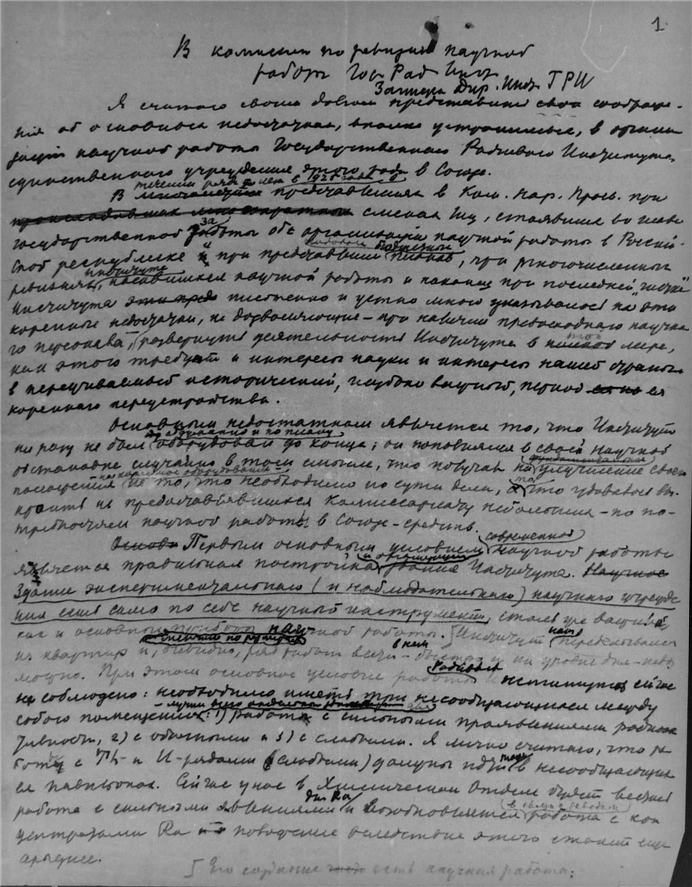 1
В комиссию по ревизии научной
работы Гос Рад Инст.
Записка Дир. Инст. ГРИ
Я считаю своим долгом представить свои соображе-
ния об основных недостатках, вполне устранимых, в органи
зации научной работы Государственного Радиевого Института,
единственного учреждения этого рода в Союзе.
течении ряда лет с 1922
В представлявшихся в Ком. Нар. Просв. при
смены лиц, стоявших во главе
государственной заботы об организации научной работы в Россий-
ской республике и при представлении планов, при многочисленных
Института
ревизиях, касавшихся научной работы и наконец при последней "чистке"
Института письменно и устно много указывалось на эти
коренные недостатки, не дозволяющие - при наличии превосходного научно
го персонала, развернуть деятельность Института в той мере,
как этого требуют и интересы науки и интересы нашей страны
в переживаемый исторический, глубоко важный, период ея
коренного переустройства.
Основным недостатком является то, что Институт
ни разу не был оборудован до конца; он пополнялся в своей научной
обстановке случайно в том смысле, что получал на улучшение своего
не то, что необходимо по сути дела, а то что удавалось вы-
кроить из предоставлявшихся Комиссариату небольших - по по-
требностям научной работы в Союзе - средств.
современной
Первым основным условием научной работы
является правильная постройка здания Института. Научное
Здание экспериментального (и наблюдательного) научного учрежде-
ния есть само по себе научный инструмент, столь же важный
как и основные приборы научной работы. Институт нам переделывался
из квартир и, очевидно, ряд работ вести в нем - и на уровне дня - невоз
можно. При этом основное условие работы Радиевого института сейчас
не соблюдено: необходимо иметь три несообщающихся между
собою помещения: 1) работа с сильными проявлениями радиоак
тивности, 2) с обычными и 3) с слабыми. Я лично считаю, что ра-
боты с Th- и U-рядами (слабыми) должны идти в несообщающих-
ся павильонах. Сейчас у нас в Химическом Отделе будет вестись
работа с сильными явлениями и возобновляется работа с кон
центратами Ra и положение вследствие этого станет еще
труднее.
Его создание есть научная работа: